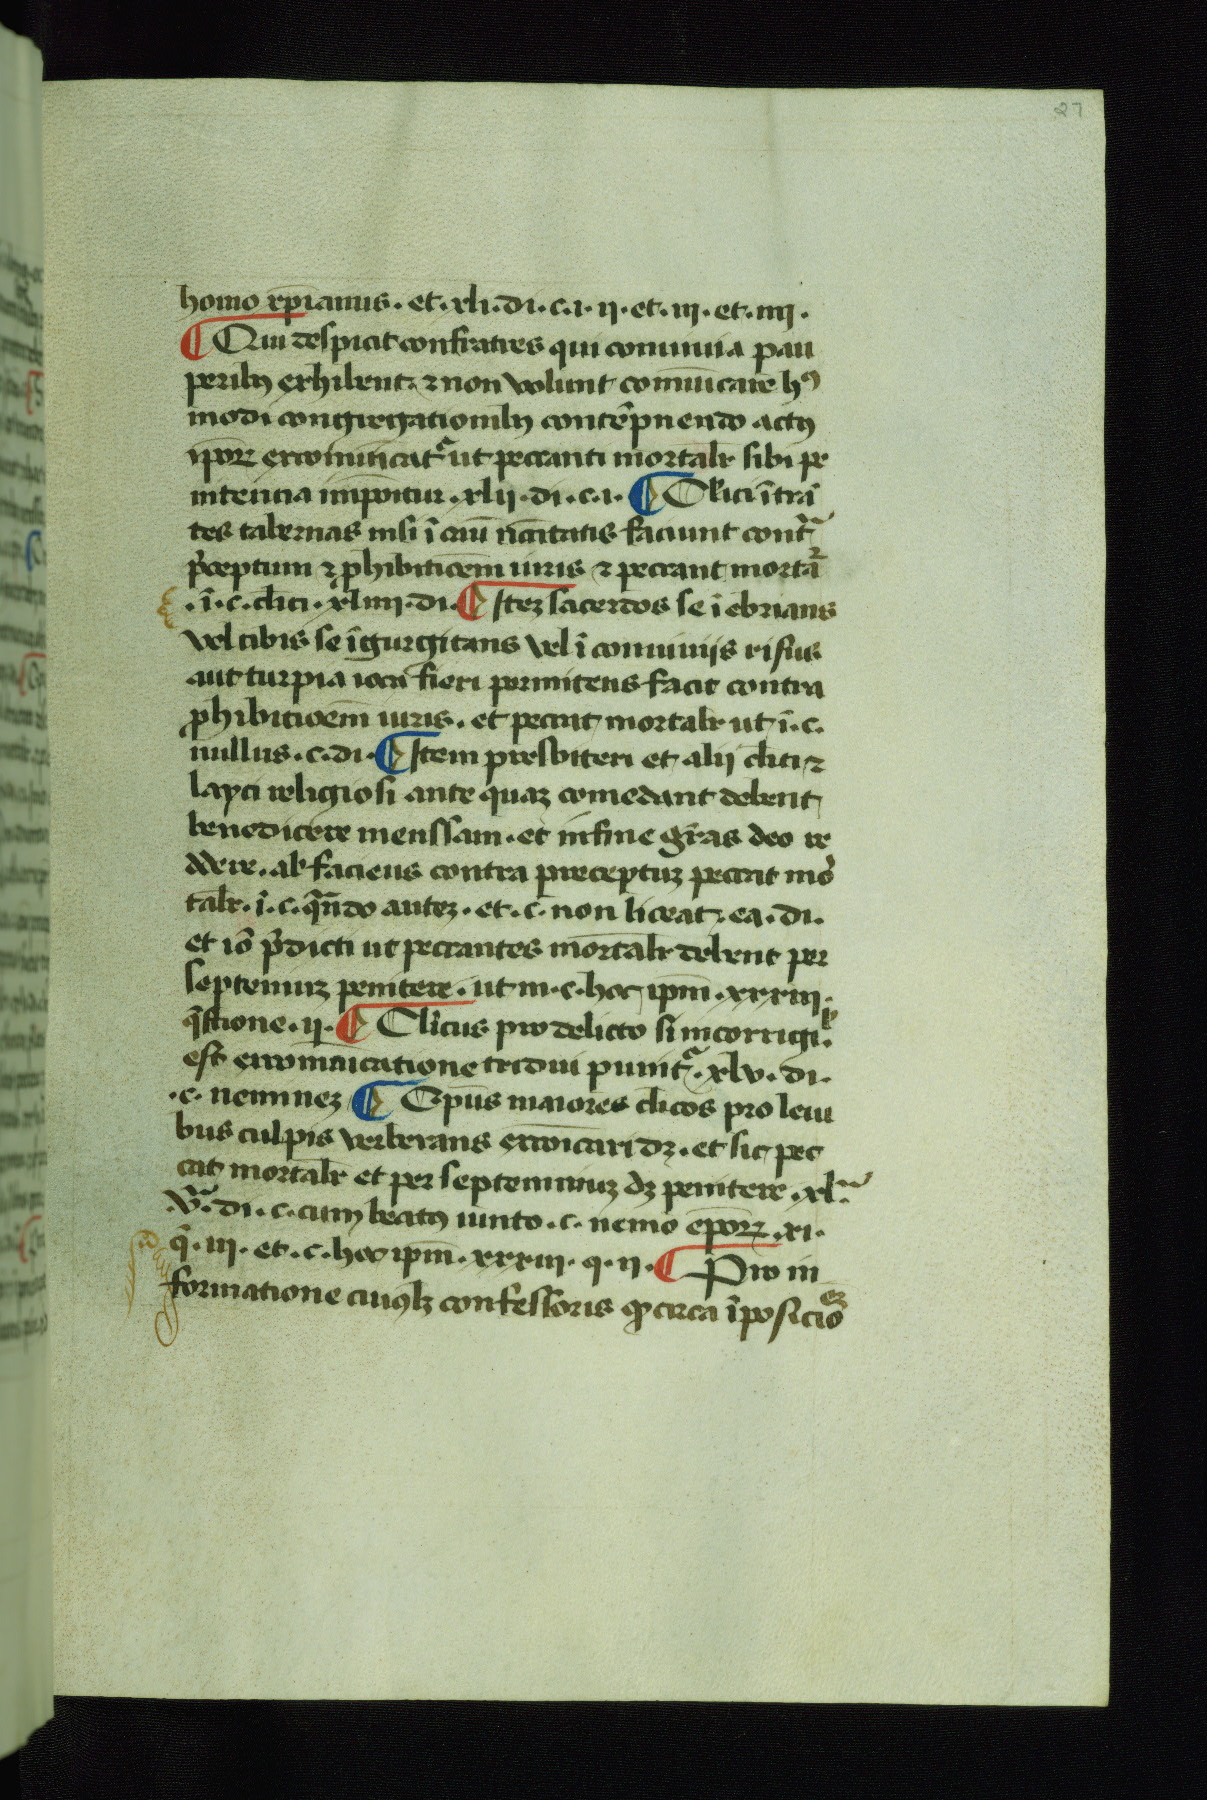 27
homo xp̄ianus. et. xli. di. c. i. ii. et. iii. et. iiii.
¶ Qui despicit confratres qui conuiuia pau
peribꝰ exhibent ⁊ non volunt com̄unicare hꝰ
modi congregationibꝰ contēpnendo actꝰ
ip̄oꝝ excom̄unicatᷣ ut peccanti mortalr̄ sibi pe
nitentia imponitur. xlii. di. c. i. ¶ Clici ītrā
tes tabernas nisi ī cāu n̄citatis faciunt cont̃
p̄ceptum ⁊ ꝓhibiticōem iuris ⁊ peccant mortar̄
. ī. c. clici. xliiii. di. ¶ Itēꝫ sacerdos se īebrians
vel cibis se īgurgitans vel ī conuiuijs risus
aut turpia ioca fieri permitens facit contra
ꝓhibitioēm iuris. et peccat mortalr̄ ut ī. c.
nullus. c. di. ¶ Item presbiteri et alij clici ⁊
layci religiosi ante quaꝫ comedant debent
benedicere menssam. et in fine gr̄as deo re
ddere. al̄r faciens contra preceptuꝫ peccat mor̄
talr̄. ī. c. qn̄do auteꝫ. et. c. non liceat. ea. di.
et iō p̄dicti ut peccantes mortalr̄ debent per
septeniuꝫ penitere. ut in. c. hoc ip̄m. xxxiii.
q̄stione. ii. ¶ Cl̄icus pro delicto si incorrigi.ᵇ
est excom̄nicatione tridui punitᷣ. xlv. di.
. c. nemineꝫ ¶ Ep̄us maiores clicos pro leui
bus culpis verberans exco̅icari dꝫ. et sic pec
cat mortalr̄ et per septenniuꝫ dꝫ penitere. xl.ᵃ
v.ᵃ di. c. cum beatꝰ iuncto. c. nemo ep̄oꝝ. xi.
q̄. iii. et. c. hoc ip̄m. xxxiii. q. ii. ¶ Pro in
formatione cuiꝰlꝫ confessoris ꝙ circa īposiciōeꝫ